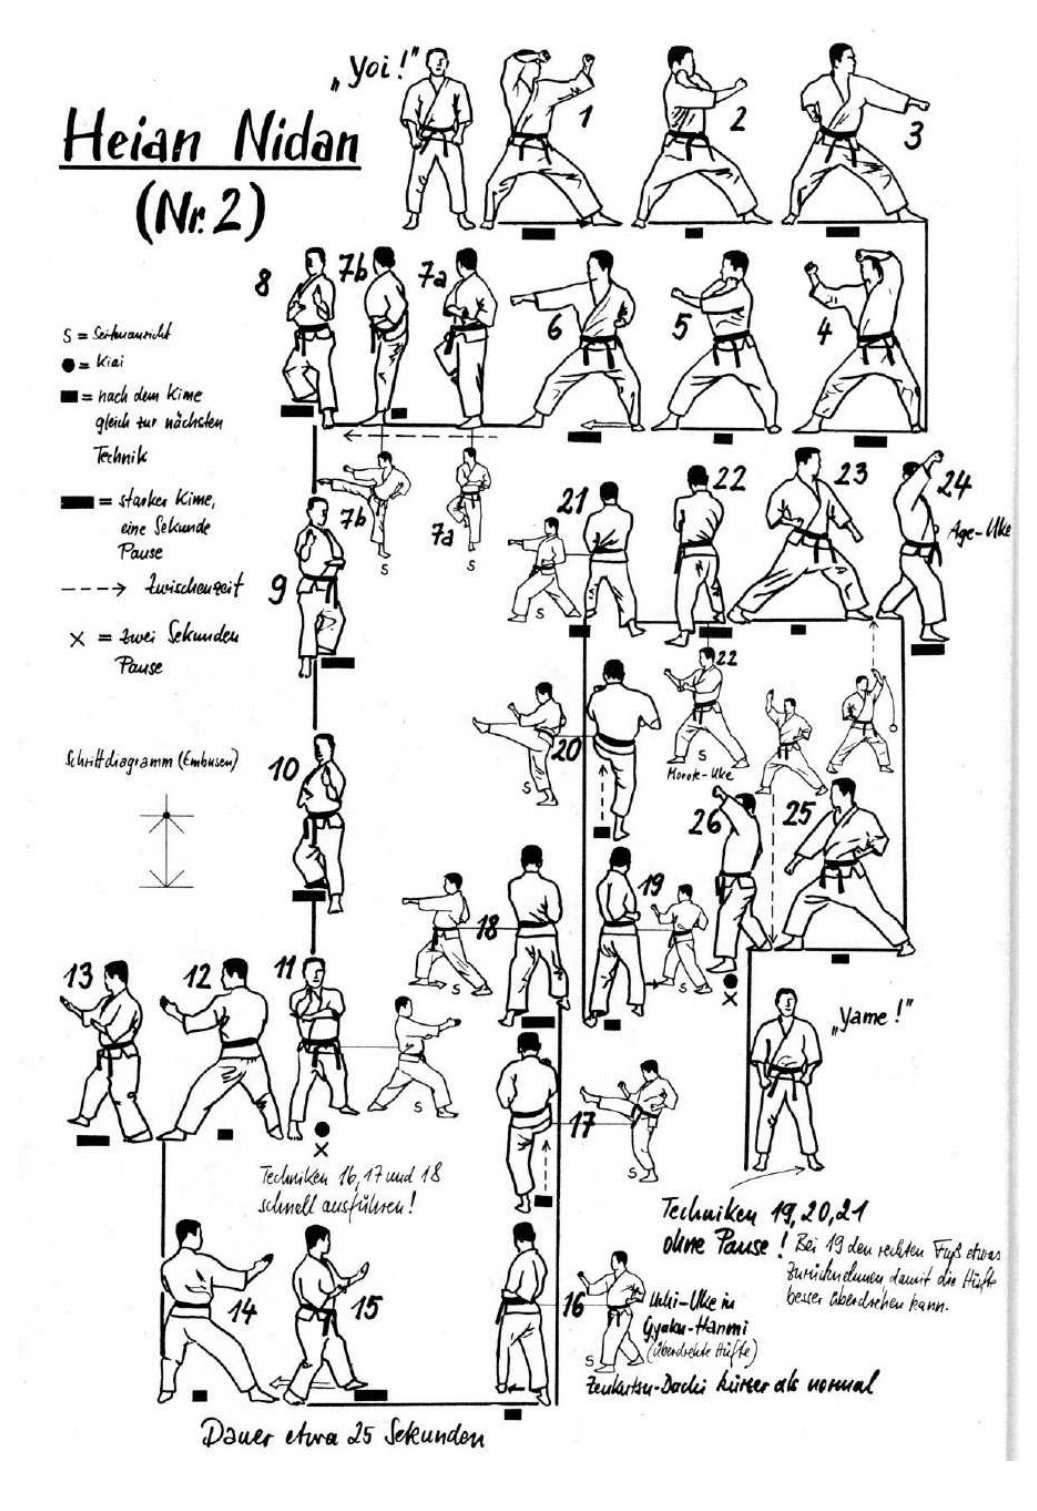 „Yoi!"
Heian Nidan
(Nr. 2)
1
2
3
8
7b
7a
6
5
4
S = Seitenansicht
● = Kiai
= nach dem Kime
gleich zur nächsten
Technik
= starker Kime,
eine Sekunde
Pause
Zwischenzeit
× = zwei Sekunden
Pause
7b
S
7a
S
9
21
S
22
23
24
Age-Uke
22
S
Morote-Uke
20
S
Schrittdiagramm (Embusen)
10
26
25
18
S
19
S
13
12
11
S
„Yame!"
17
S
Techniken 16, 17 und 18
schnell ausführen!
Techniken 19, 20, 21
ohne Pause! Bei 19 den rechten Fuß etwas
zurücknehmen, damit die Hüfte
besser überdrehen kann.
14
15
16
S
Uchi-Uke in
Gyaku-Hanmi
(überdrehte Hüfte)
Zenkutsu-Dachi kürzer als normal
Dauer etwa 25 Sekunden